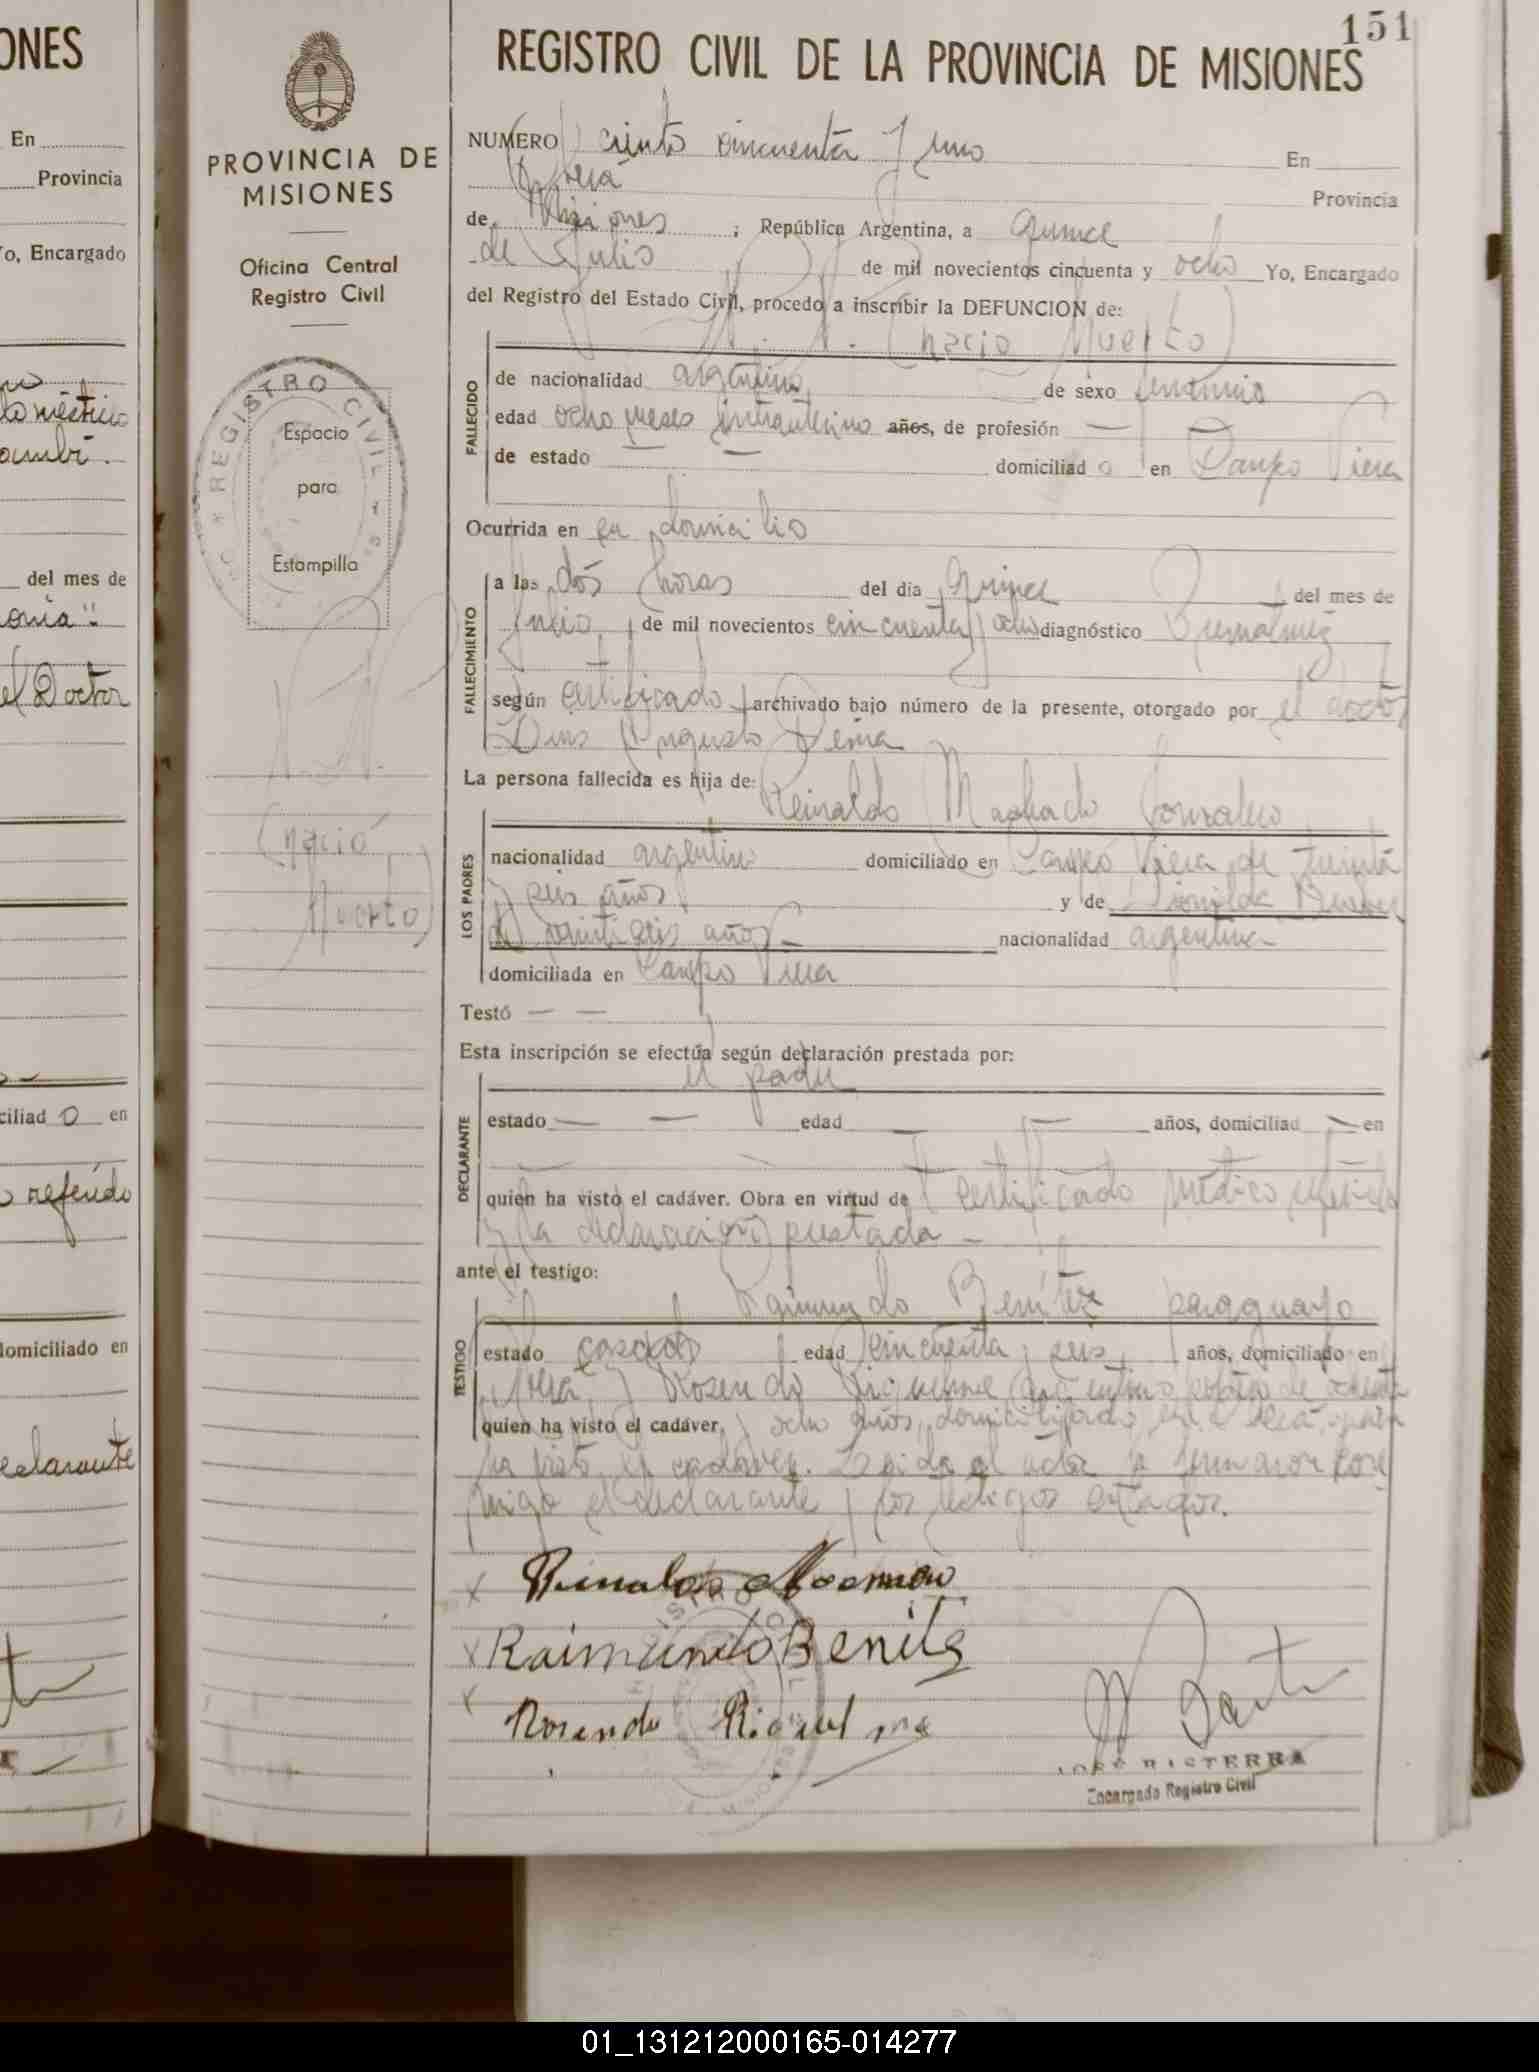 ONES
En
Provincia
Yo, Encargado
del mes de
el Doctor
ciliad o en
o referido
domiciliado en
declarante
151
REGISTRO CIVIL DE LA PROVINCIA DE MISIONES
PROVINCIA DE
MISIONES
Oficina Central
Registro Civil
REGISTRO CIVIL
Espacio
para
Estampilla
N. N.
(nació
Muerto)
NUMERO ciento cincuenta y uno En
Oberá Provincia
de Misiones ; República Argentina, a quince
de Julio de mil novecientos cincuenta y ocho Yo, Encargado
del Registro del Estado Civil, procedo a inscribir la DEFUNCION de:
N. N. (nacio Muerto)
FALLECIDO
de nacionalidad argentino de sexo femenino
edad ocho meses intrauterino años, de profesión —
de estado — — domiciliad o en Campo Viera
Ocurrida en su domicilio
FALLECIMIENTO
a las dos horas del día quince del mes de
Julio de mil novecientos cincuenta y ocho diagnóstico Prematurez
según certificado archivado bajo número de la presente, otorgado por el doctor
Luis Augusto
La persona fallecida es hija de:
Reinaldo Machado
LOS PADRES
nacionalidad argentino domiciliado en Campo Viera de treinta
y seis años y de Leonilda
de veintiseis años — nacionalidad argentina
domiciliada en Campo Viera
Testó — —
Esta inscripción se efectúa según declaración prestada por:
el padre
DECLARANTE
estado — — edad — — años, domiciliad — en
quien ha visto el cadáver. Obra en virtud de certificado médico referido
y la declaración prestada —
ante el testigo:
Raimundo Benítez paraguayo
TESTIGO
estado casado edad cincuenta y seis años, domiciliado en
Oberá y Rosendo Riquelme argentino de
quien ha visto el cadáver, y ocho años, domiciliado en Oberá, quien
ha visto el cadáver. Leida el acta la firmaron con-
migo el declarante y los testigos citados.
X
X Raimundo Benitez
X Rosendo Riquelme
JOSÉ BISTERRA
Encargado Registro Civil
01_131212000165-014277